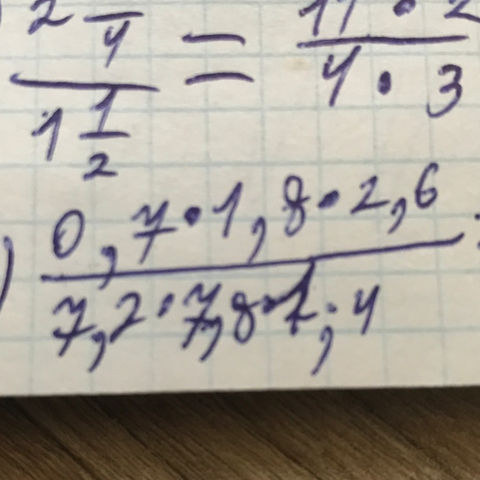 2 —/4 = 11 · 2
1 1/2 4 · 3
) 0,7 · 1,8 · 2,6
7,2 · 7,8 · 1,4